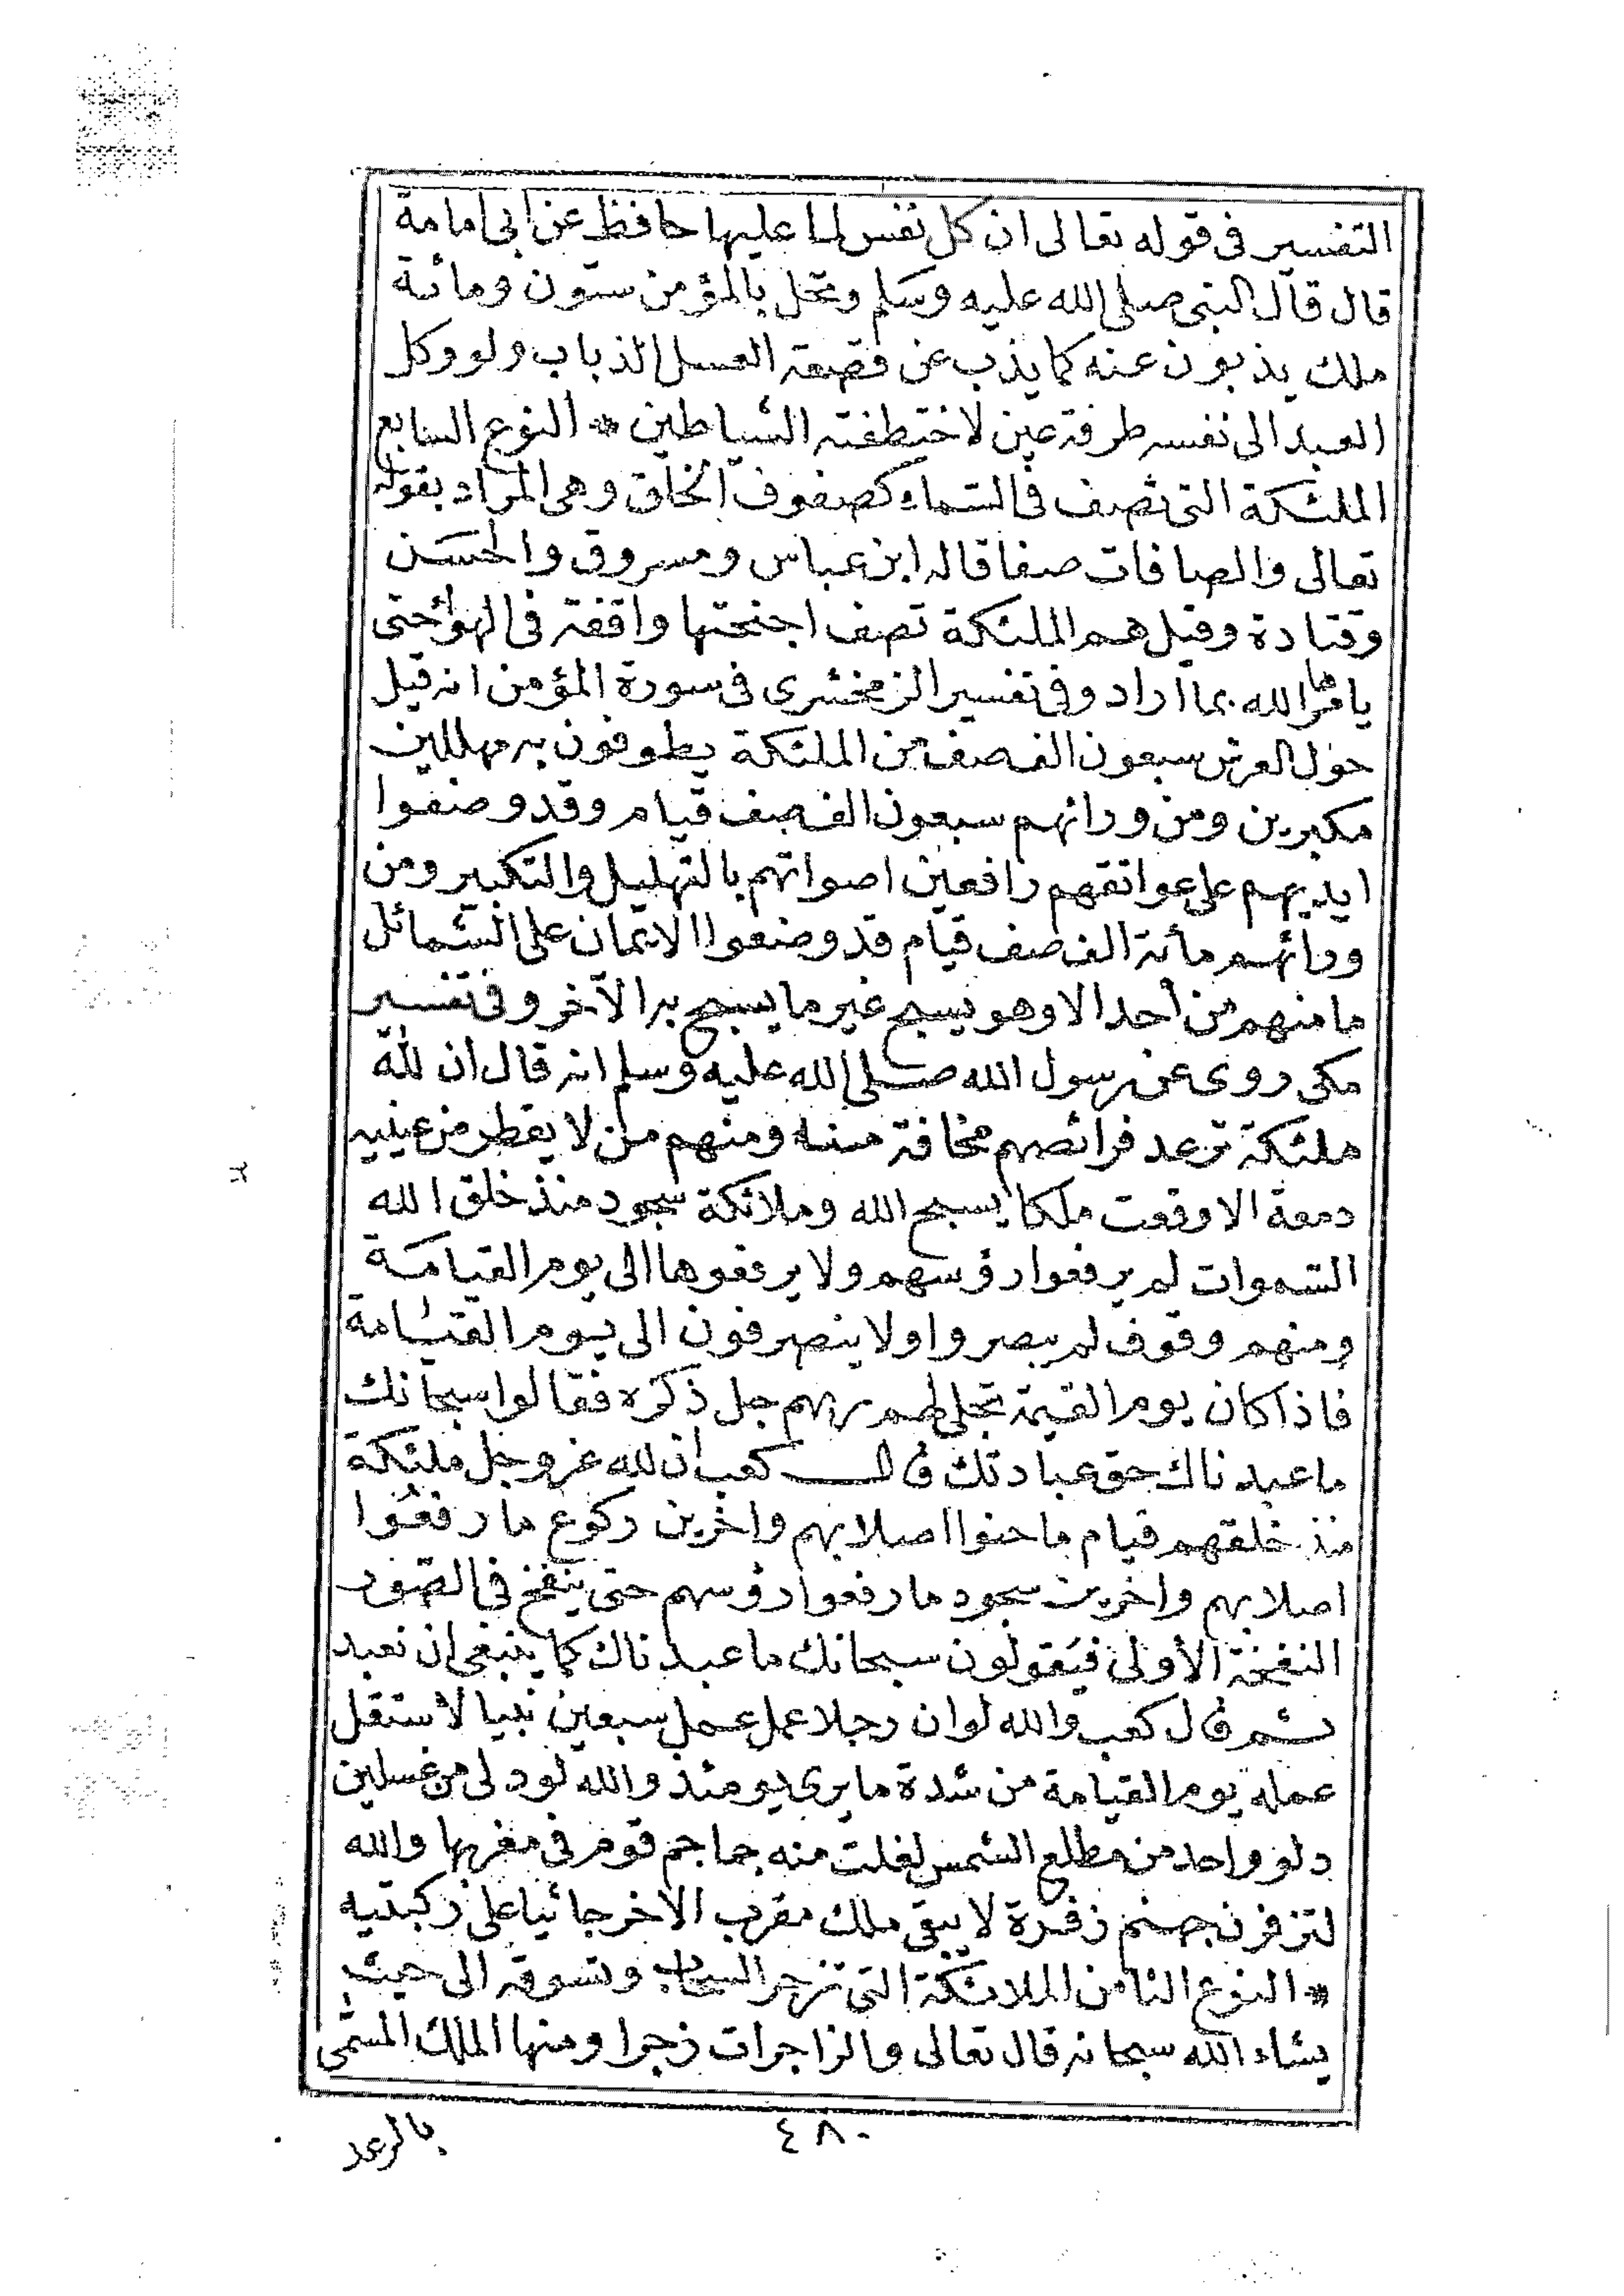 التفسير فى قوله تعالى ان كل نفس لما عليها حافظ عن ابى امامة
قال قال النبى صلى الله عليه وسلم وكل بالمؤمن ستون ومائة
ملك يذبون عنه كما يذب عن قصعة العسل الذباب ولو وكل
العبد الى نفسه طرفة عين لاختطفته الشياطين * النوع السابع
الملئكة التى تصف فى السماء كصفوف الخلق وهى المراد بقوله
تعالى والصافات صفا قاله ابن عباس ومسروق والحسن
وقتادة وقيل هم الملئكة تصف اجنحتها واقفة فى الهواء حتى
يامرها الله بما اراد وفى تفسير الزمخشرى فى سورة المؤمن انه قيل
حول العرش سبعون الف صف من الملئكة يطوفون به مهللين
مكبرين ومن ورائهم سبعون الف صف قيام وقد وضعوا
ايديهم على عواتقهم رافعين اصواتهم بالتهليل والتكبير ومن
ورائهم مائة الف صف قيام قد وضعوا الايمان على الشمائل
ما منهم من احد الا وهو يسبح غير ما يسبح به الآخر وفى تفسير
مكى روى عن رسول الله صلى الله عليه وسلم انه قال ان لله
ملئكة ترعد فرائصهم مخافة منه ومنهم من لا يقطر من عينيه
دمعة الا وقعت ملكا يسبح الله وملائكة سجود منذ خلق الله
السموات لم يرفعوا رؤسهم ولا يرفعوها الى يوم القيامة
ومنهم وقوف لم يبصروا ولا ينصرفون الى يوم القيامة
فاذا كان يوم القيمة تجلى لهم ربهم جل ذكره فقالوا سبحانك
ما عبدناك حق عبادتك قال كعب ان لله عز وجل ملئكة
منذ خلقهم قيام ما حنوا اصلابهم واخرين ركوع ما رفعوا
اصلابهم واخرين سجود ما رفعوا رؤسهم حتى ينفخ فى الصور
النفخة الأولى فيقولون سبحانك ما عبدناك كما ينبغى ان نعبد
ثم قال كعب والله لو ان رجلا عمل عمل سبعين نبيا لاستقل
عمله يوم القيامة من شدة ما يرى يومئذ والله لو دلى من غسلين
دلو واحد من مطلع الشمس لغلت منه جماجم قوم فى مغربها والله
لتزفرن جهنم زفرة لا يبقى ملك مقرب الا خر جاثيا على ركبتيه
* النوع الثامن الملائكة التى تزجر السحاب وتسوقه الى حيث
يشاء الله سبحانه قال تعالى والزاجرات زجرا ومنها الملك المسمى
بالرعد
٤٨٠